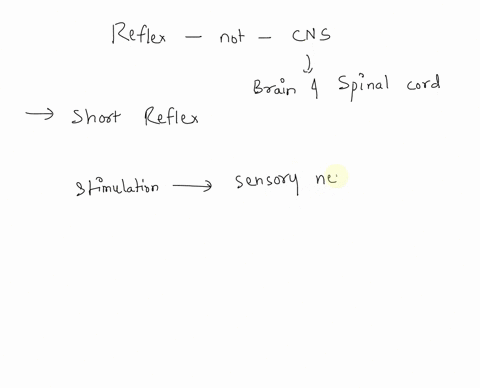 Reflex - not - CNS
↓
Brain & Spinal cord
→ Short Reflex
Stimulation → Sensory ne